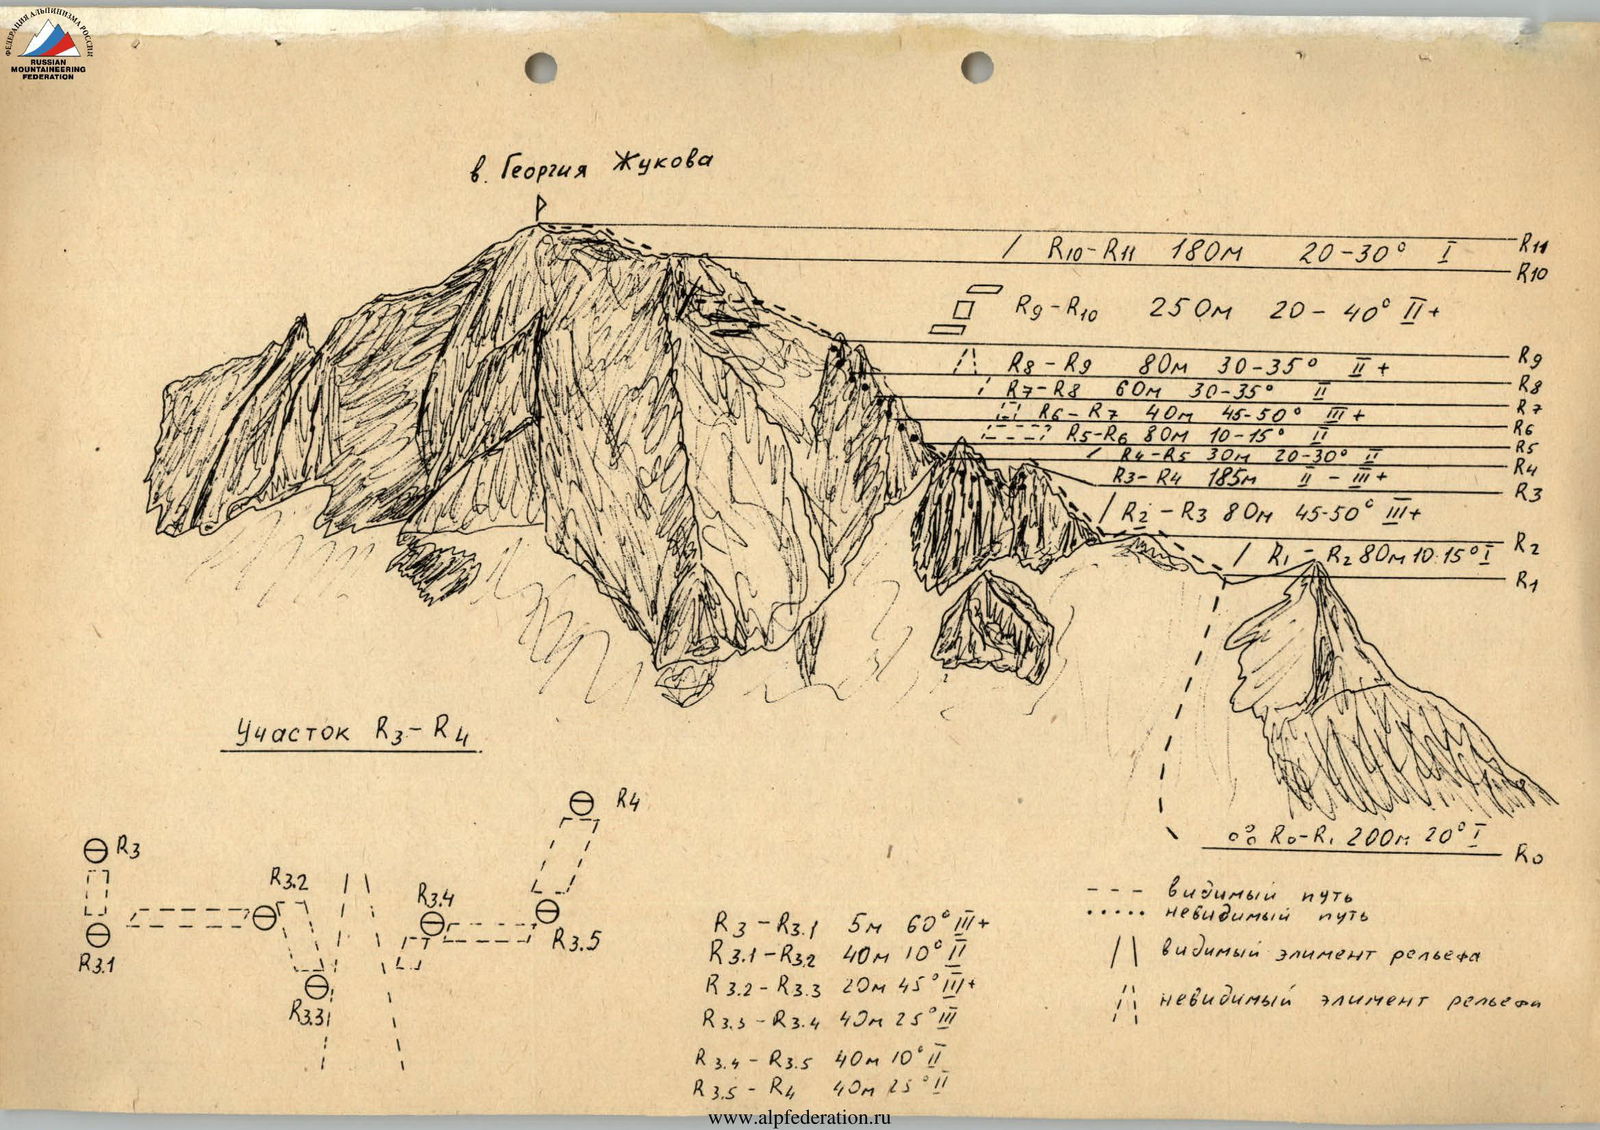 ФЕДЕРАЦИЯ АЛЬПИНИЗМА РОССИИ
RUSSIAN
MOUNTAINEERING
FEDERATION
в. Георгия Жукова
R10-R11 180м 20-30° I
R11
R10
R9-R10 250м 20-40° II+
R9
R8-R9 80м 30-35° II+
R8
R7-R8 60м 30-35° II
R7
R6-R7 40м 45-50° III+
R6
R5-R6 80м 10-15° II
R5
R4-R5 30м 20-30° II
R4
R3-R4 185м II-III+
R3
R2-R3 80м 45-50° III+
R2
R1-R2 80м 10-15° I
R1
R0-R1 200м 20° I
R0
Участок R3-R4
R4
R3
R3.2
R3.4
R3.5
R3.1
R3.3
R3-R3.1 5м 60° III+
R3.1-R3.2 40м 10° II
R3.2-R3.3 20м 45° III+
R3.3-R3.4 40м 25° III
R3.4-R3.5 40м 10° II
R3.5-R4 40м 25° II
--- видимый путь
..... невидимый путь
видимый элимент рельефа
невидимый элимент рельефа
www.alpfederation.ru